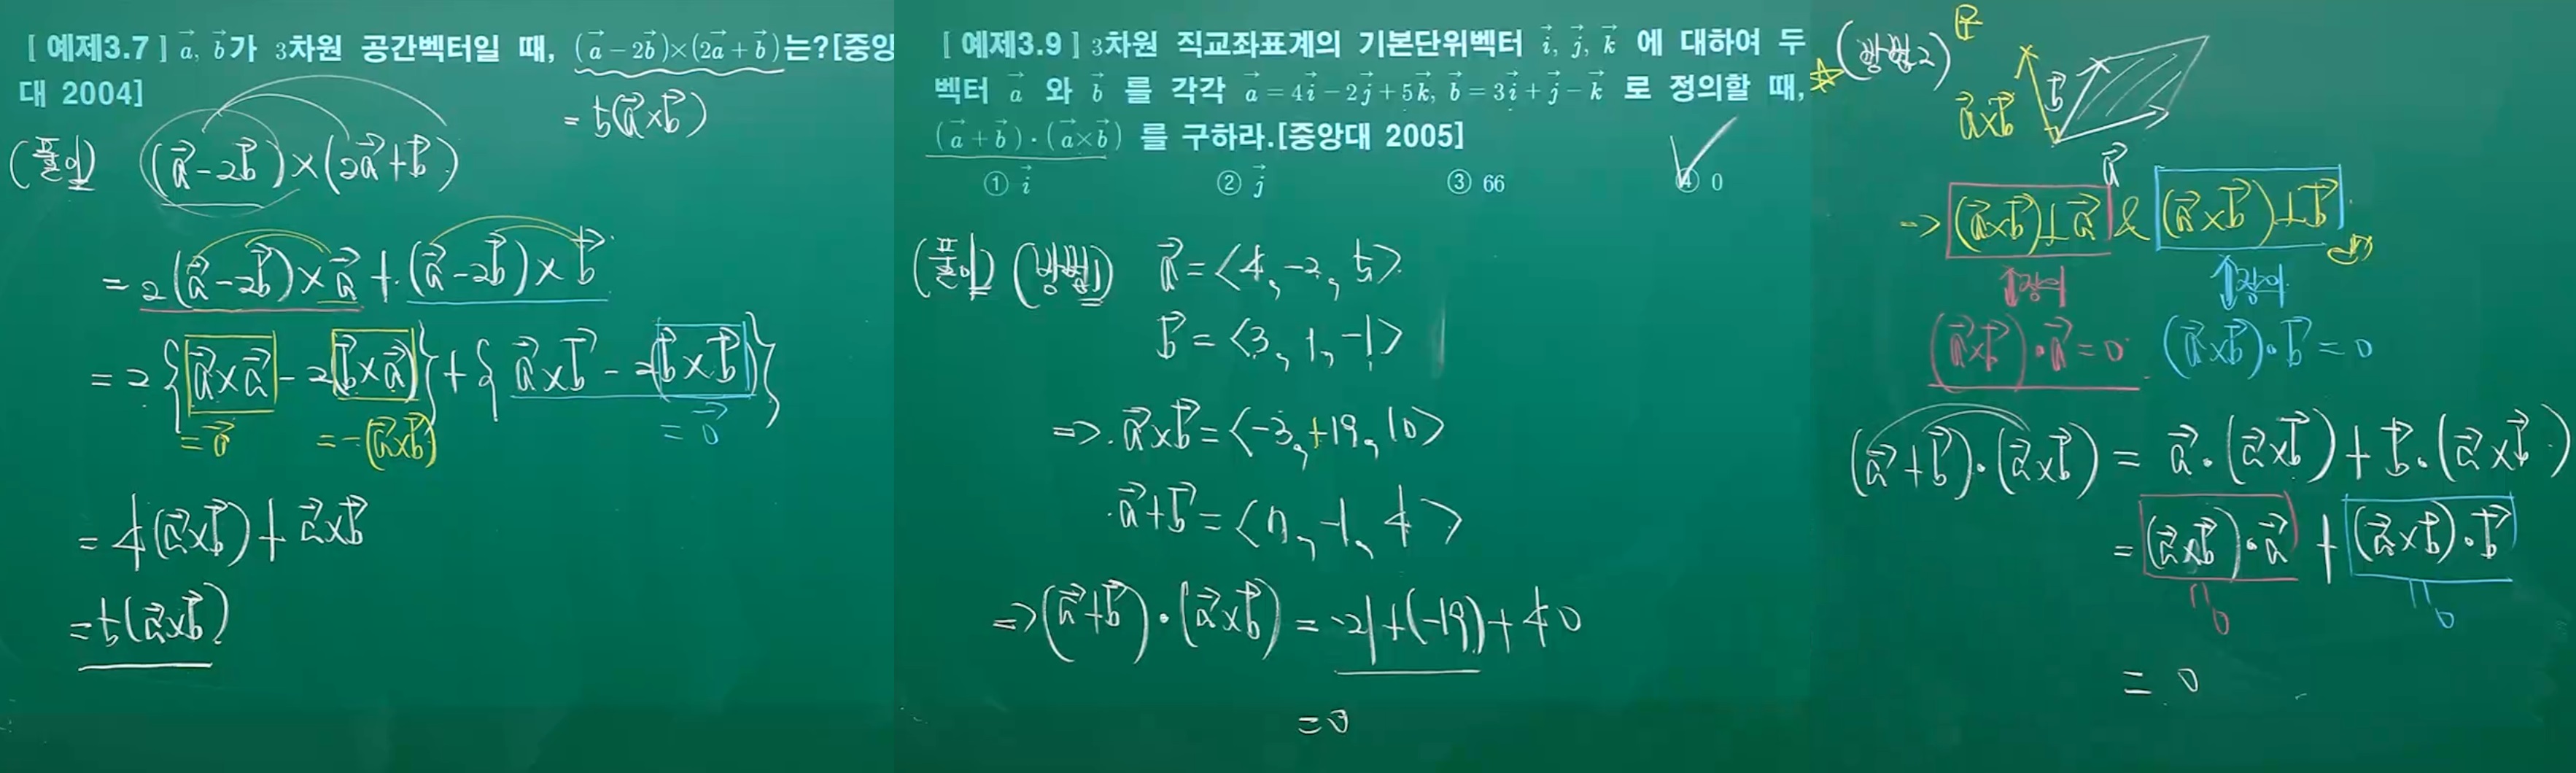 [ 예제3.7 ] a⃗, b⃗가 3차원 공간벡터일 때, (a⃗ − 2b⃗)×(2a⃗ + b⃗)는?[중앙
대 2004]
= 5(a⃗×b⃗)
(풀이) (a⃗-2b⃗)×(2a⃗+b⃗)
= 2(a⃗-2b⃗)×a⃗ + (a⃗-2b⃗)×b⃗
= 2{a⃗×a⃗ - 2(b⃗×a⃗)} + {a⃗×b⃗ - 2(b⃗×b⃗)}
= 0⃗ = -(a⃗×b⃗) = 0⃗
= 4(a⃗×b⃗) + a⃗×b⃗
= 5(a⃗×b⃗)
[ 예제3.9 ] 3차원 직교좌표계의 기본단위벡터 i⃗, j⃗, k⃗ 에 대하여 두
벡터 a⃗ 와 b⃗ 를 각각 a⃗ = 4i⃗ − 2j⃗ + 5k⃗, b⃗ = 3i⃗ + j⃗ − k⃗ 로 정의할 때,
(a⃗ + b⃗)·(a⃗×b⃗) 를 구하라.[중앙대 2005]
① i⃗ ② j⃗ ③ 66 ④ 0
(풀이) (방법1) a⃗ = <4, -2, 5>
b⃗ = <3, 1, -1>
=> a⃗×b⃗ = <-3, +19, 10>
a⃗+b⃗ = <7, -1, 4>
=> (a⃗+b⃗)·(a⃗×b⃗) = -21+(-19)+40
= 0
☆(방법2)
b⃗
a⃗×b⃗
a⃗
=> (a⃗×b⃗)⊥a⃗ & (a⃗×b⃗)⊥b⃗
⇕정의 ⇕정의
(a⃗×b⃗)·a⃗ = 0 (a⃗×b⃗)·b⃗ = 0
(a⃗+b⃗)·(a⃗×b⃗) = a⃗·(a⃗×b⃗) + b⃗·(a⃗×b⃗)
= (a⃗×b⃗)·a⃗ + (a⃗×b⃗)·b⃗
0 0
= 0